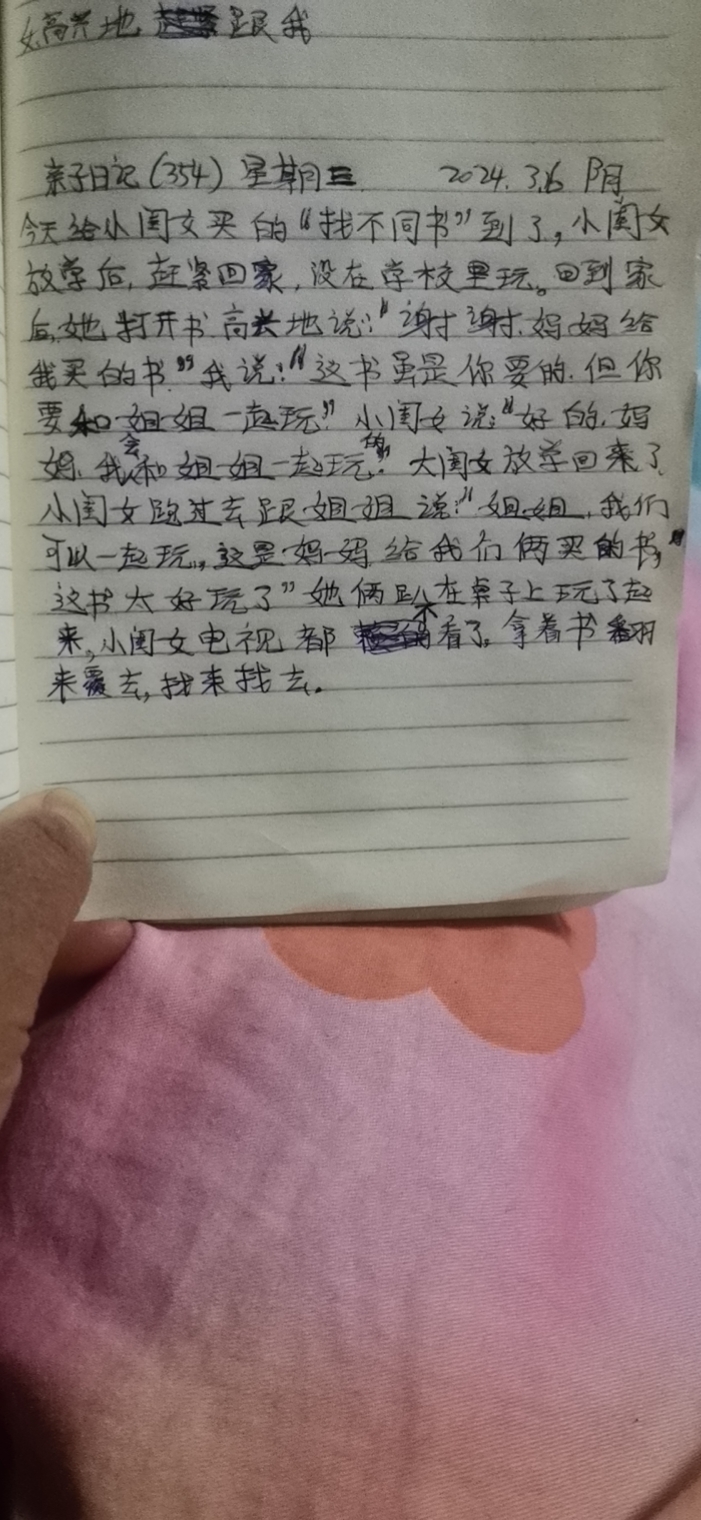 女高兴地跟我
亲子日记(354) 星期三 2024.3.6 阴
今天给小闺女买的“找不同书”到了,小闺女
放学后,赶紧回家,没在学校里玩。回到家
后,她打开书高兴地说:“谢谢妈妈给
我买的书”我说:“这书虽是你要的.但你
要和姐姐一起玩”小闺女说:“好的.妈
妈.我会和姐姐一起玩的”大闺女放学回来了
小闺女跑过去跟姐姐说:“姐姐,我们
可以一起玩,这是妈妈给我们俩买的书,
这书太好玩了”她俩趴在桌子上玩了起
来,小闺女电视都不看了,拿着书翻
来覆去,找来找去.